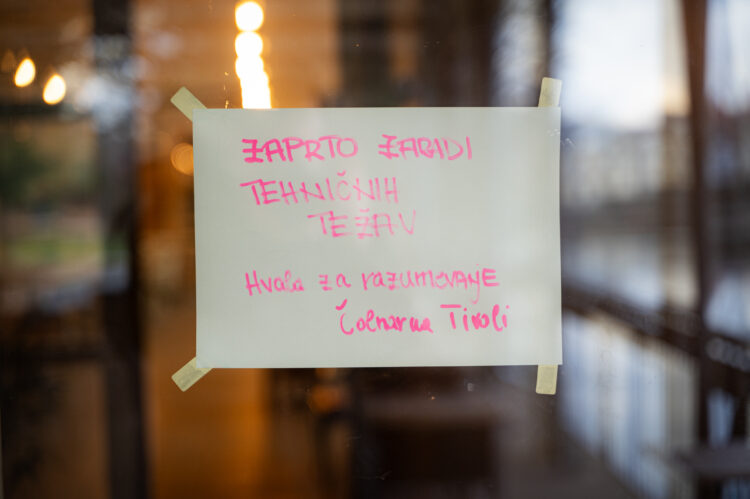 ZAPRTO ZARIDI
TEHNIČNIH
TEŽAV
Hvala za razumevanje
Čolnarna Tivoli